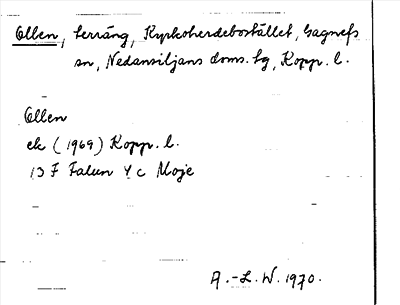 Ollen, terräng, Kyrkoherdebostället, Gagnefs
sn, Nedansiljans doms. hg, Kopp. l.
Ollen
ek (1969) Kopp. l.
13 F Falun 4 c Moje
A.-L. W. 1970.